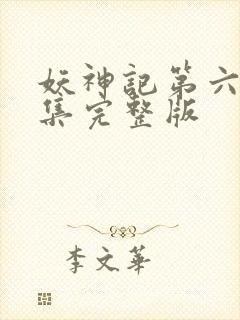 妖神記第六
集完整版
李文華